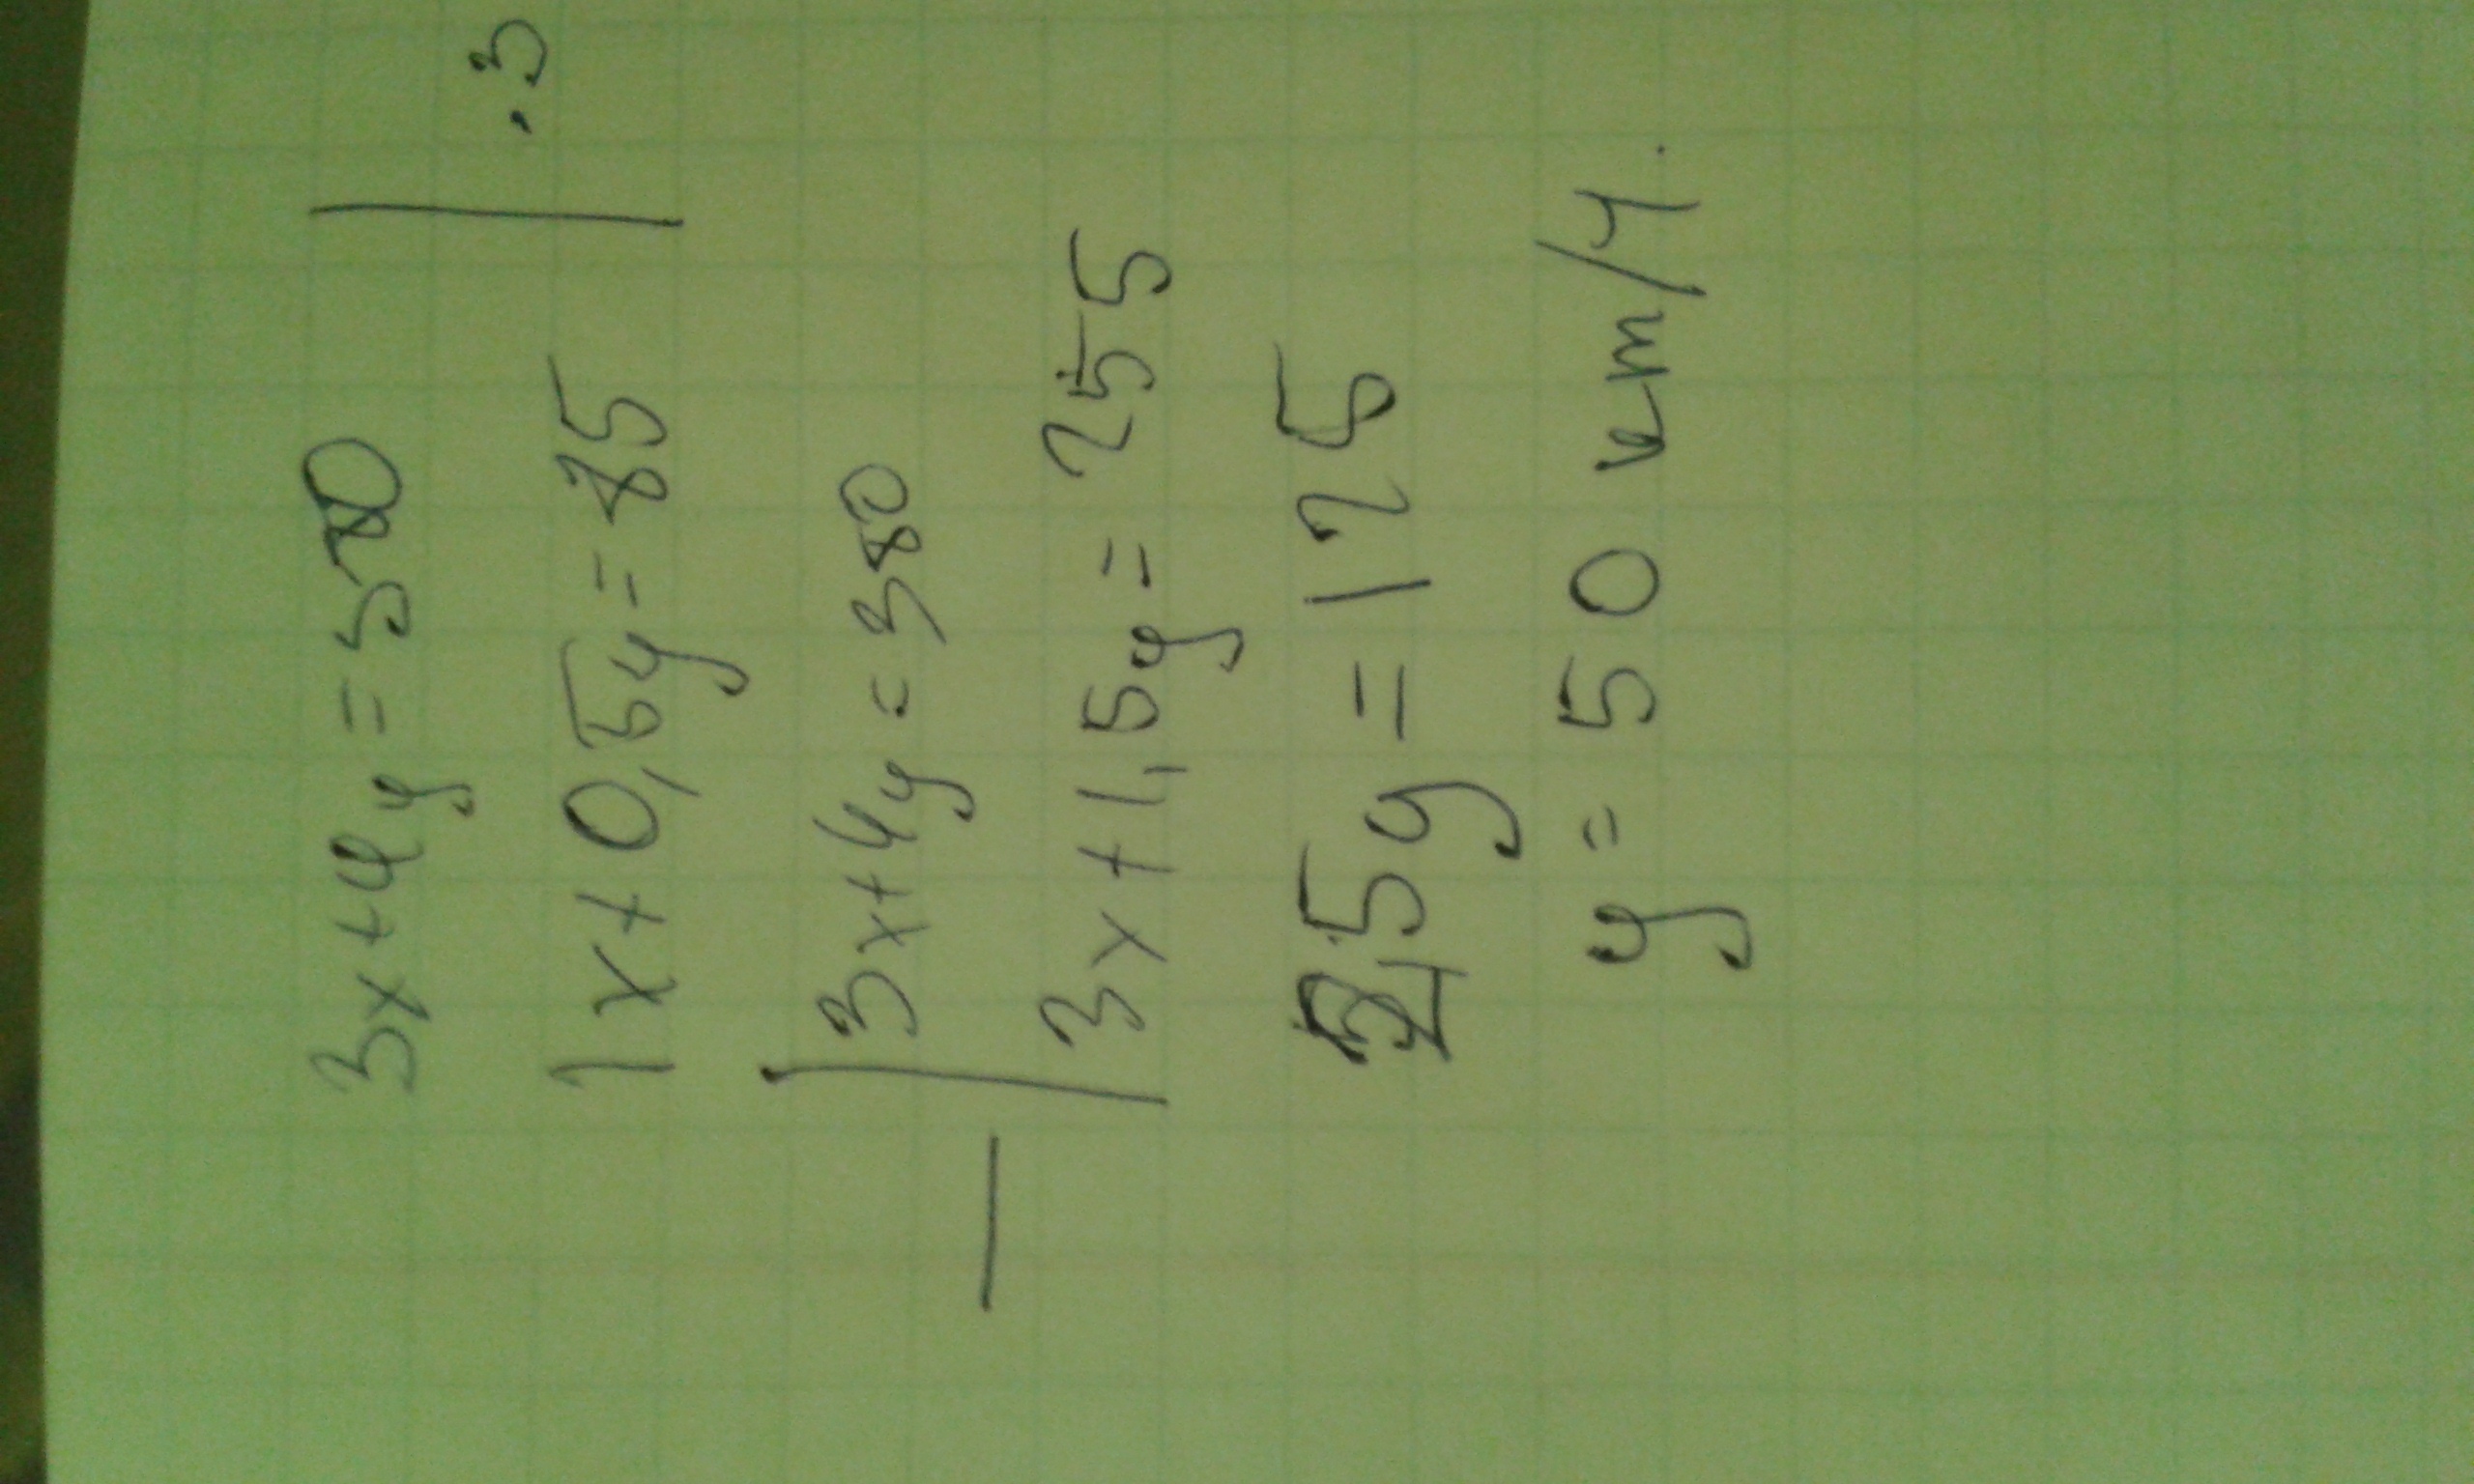 3x+4y=380
1x+0,5y=85 | ·3
3x+4y=380
—
3x+1,5y=255
2,5y=125
y=50 км/ч.